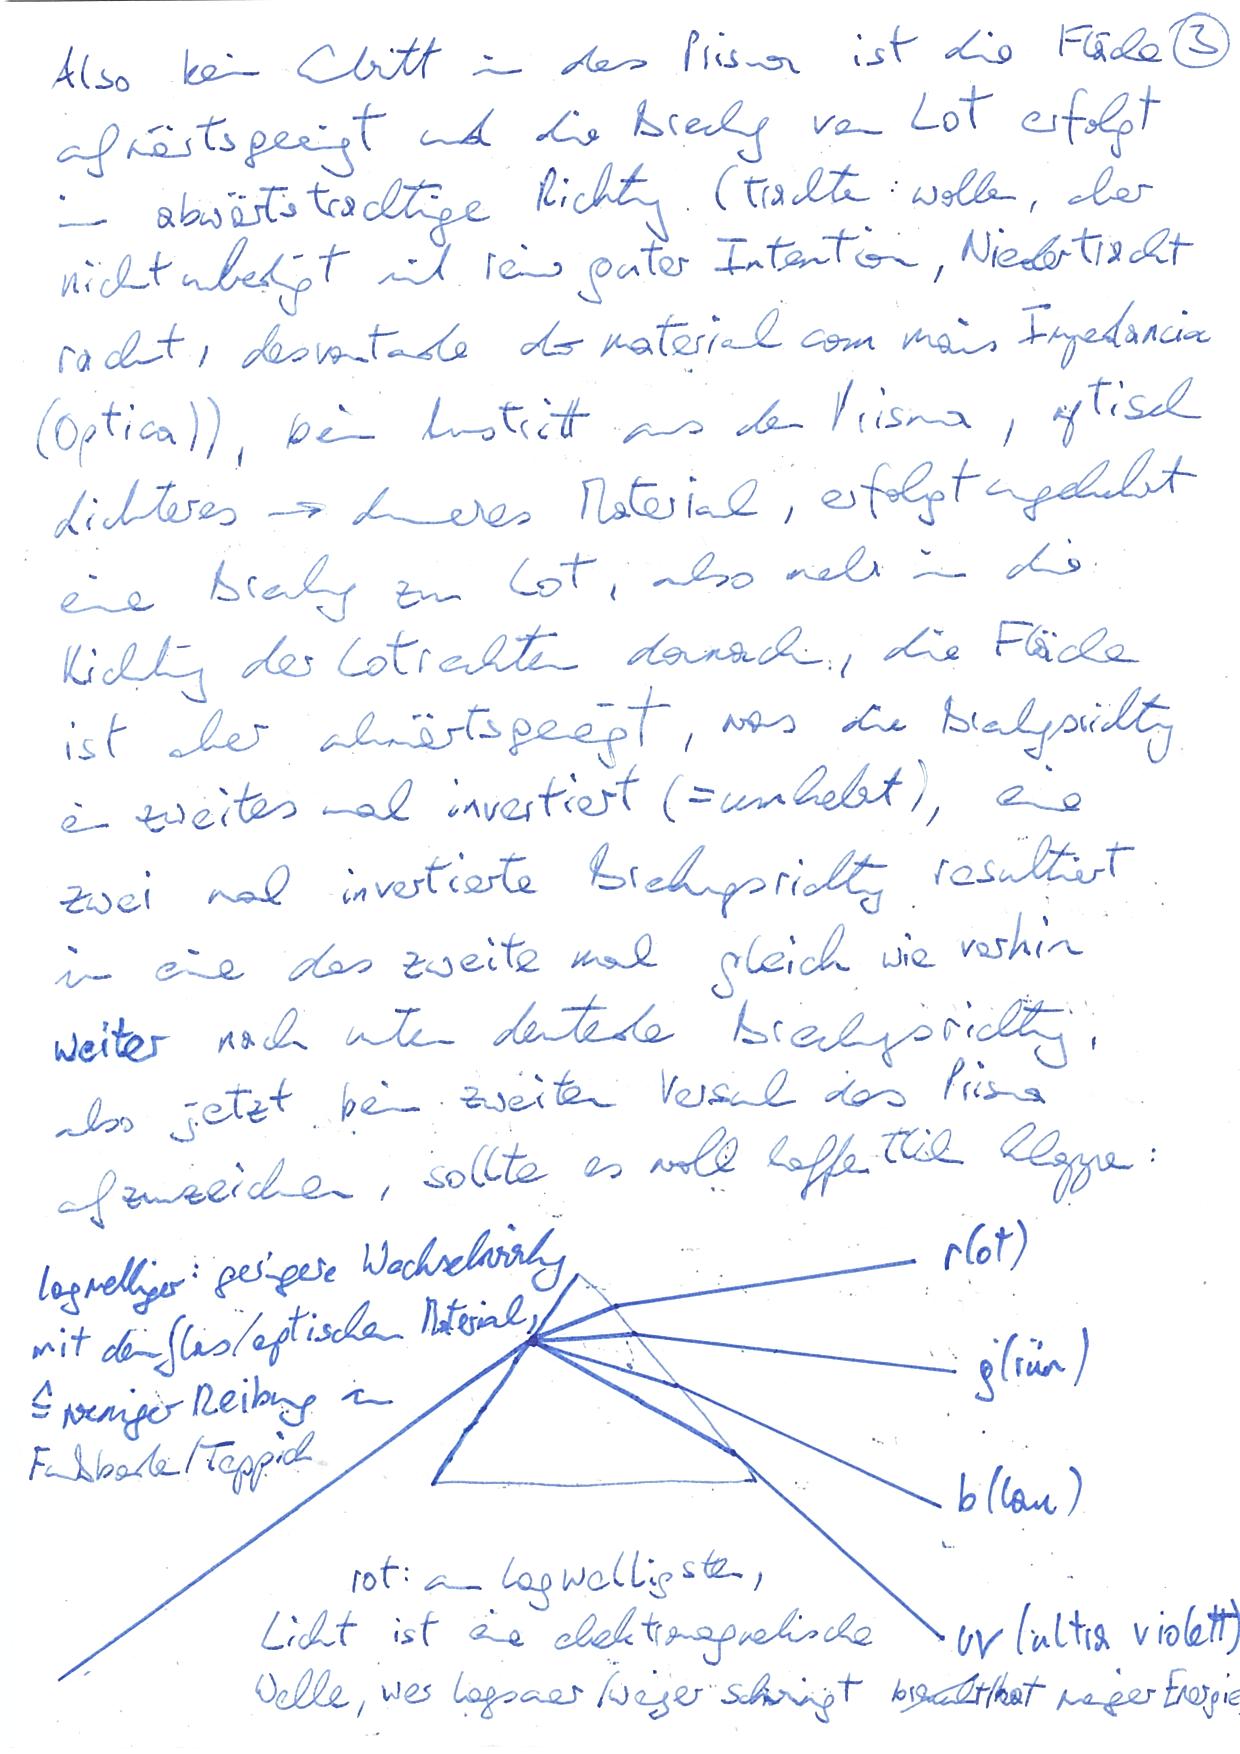 Also beim Eintritt in das Prisma ist die Fläche ③
aufwärtsgeneigt und die Brechung vom Lot erfolgt
in abwärtsträchtige Richtung (trachte: wolle, aber
nicht unbedingt mit reiner guter Intention, Niedertracht
racht, desvantade do material com mais Impedancia
(Optica)), beim Austritt aus dem Prisma, optisch
dichteres → dünneres Material, erfolgt umgekehrt
eine Brechung zum Lot, also mehr in die
Richtung der Lotrechten danach, die Fläche
ist aber abwärtsgeneigt, was die Brechungsrichtung
ein zweites mal invertiert (=umkehrt), eine
zwei mal invertierte Brechungsrichtung resultiert
in eine das zweite mal gleich wie vorhin
weiter nach unten deutende Brechungsrichtung,
also jetzt beim zweiten Versuch das Prisma
aufzuzeichen, sollte es woll hoffentlich klappen:
langwelliger: geringere Wechselwirkung
mit dem Glas/optischen Material,
≙ weniger Reibung am
Fußboden/Teppich
r(ot)
g(rün)
b(lau)
uv (ultra violett)
rot: am langwelligsten,
Licht ist eine elektromagnetische
Welle, wer langsamer/weniger schwingt hat weniger Energie